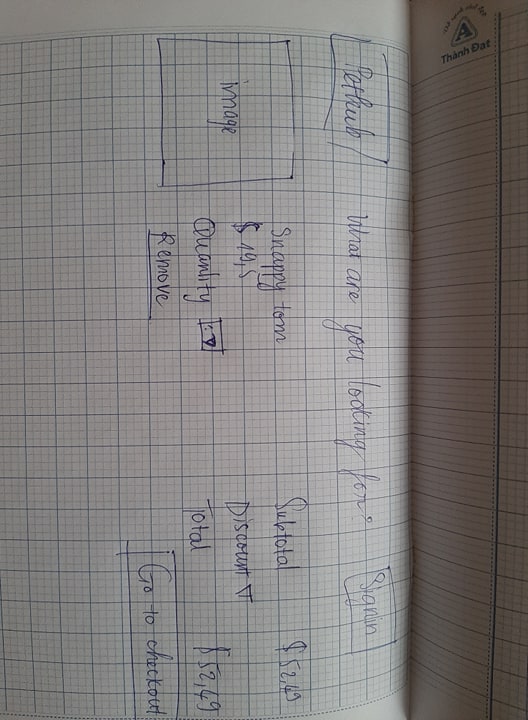 Thành Đạt
Pethub What are you looking for? Signin
image
Snappy tom
$ 19,5
Quantity
Remove
Subtotal $52,49
Discount
Total $52,49
Go to checkout